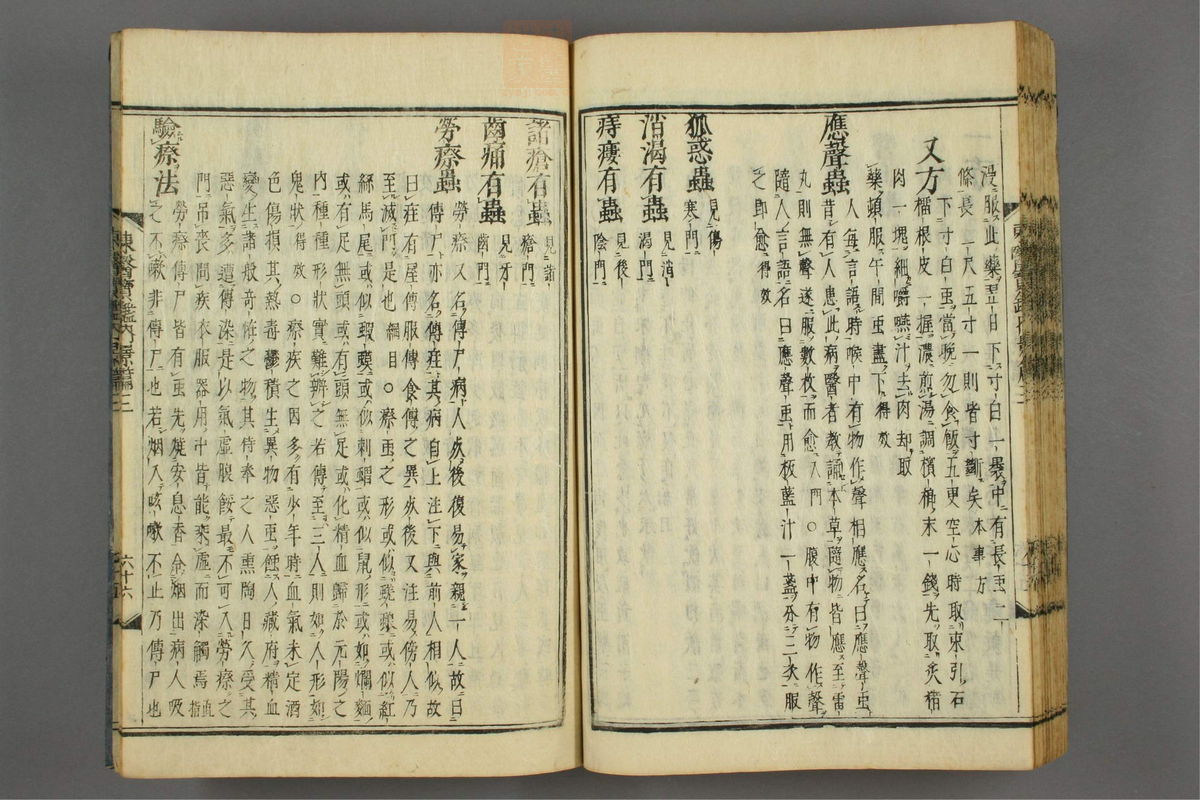 浸服此藥翌日下寸白一裹中有長虫二
條長一尺五寸一則皆寸斷矣本事方
又方 下寸白虫當晚勿食飯五更空心時取東引石
榴根皮一握濃煎湯調檳榔末一錢先取炙猪
肉一塊細嚼嚥汁去肉却取
藥頓服午間虫盡下得效
應聲蟲 人每言語時喉中有物作聲相應名曰應聲虫
昔有人患此病醫者教誦本草隨物皆應至雷
丸則無聲遂服數枚而愈入門○腹中有物作聲
隨人言語名曰應聲虫用板藍汁一盞分三灸服
之即愈得效
狐惑蟲 見傷寒門
消渴有蟲 見消渴門
痔瘻有蟲 見後陰門
諸瘡有蟲 見諸瘡門
齒痛有蟲 見牙齒門
勞瘵蟲 勞瘵又名傳尸病人死後復易家親一人故曰
傳尸亦名傳疰其病自上注下與前人相似故
曰疰有屋傳服傳食傳之異死後又注易傍人乃
至滅門是也綱目○瘵虫之形或似蜣螂或似紅
絲馬尾或似蝦蟆或似刺蝟或似鼠形或如爛麵
或有足無頭或有頭無足或化精血歸於元陽之
內種種形狀實難辨之若傳至三人則如人形如
鬼狀得效○瘵疾之因多有少年時血氣未定酒
色傷損其熱毒鬱積生異物惡虫蝕人藏府精血
變生諸般奇恠之物其侍奉之人熏陶日久受其
惡氣多遭傳染是以氣虛腹餒最不可入勞瘵之
門吊喪問疾衣服器用中皆能乘虛而染觸焉
驗瘵法 勞瘵傳尸皆有虫先燒安息香令烟出病人吸
之不嗽非傳尸也若烟入咳嗽不止乃傳尸也
東醫寶鑑內景篇三
六十六